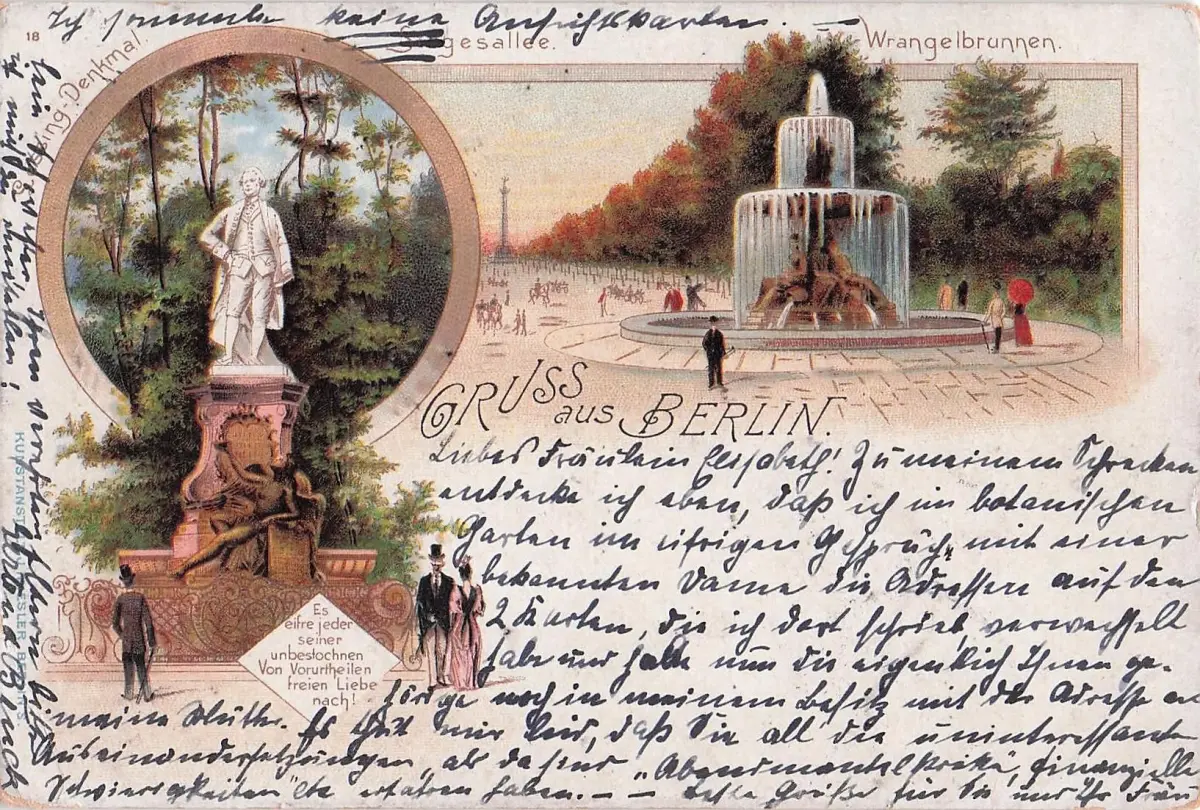 Ich sammle keine Ansichtskarten. —
18
Lessing-Denkmal.
Siegesallee.
Wrangelbrunnen.
GRUSS aus BERLIN.
Es
eifre jeder
seiner
unbestochnen
Von Vorurtheilen
freien Liebe
nach!
Liebes Fräulein Elisabeth! Zu meinem Schrecken
entdecke ich eben, daß ich im botanischen
Garten im eifrigen Gespräch mit einer
bekannten Dame die Adressen auf den
2 Karten, die ich dort schrieb, verwechselt
habe und halte nun die eigentlich Ihnen ge-
hörige noch in meinem Besitz mit der Adresse an
meine Mutter. Es thut mir leid, daß Sie all die uninteressanten
Auseinandersetzungen, als da sind „Abendmantelstriche, finanzielle
Schwierigkeiten" etc erfahren haben. — Beste Grüße für Sie und Ihr Fräu